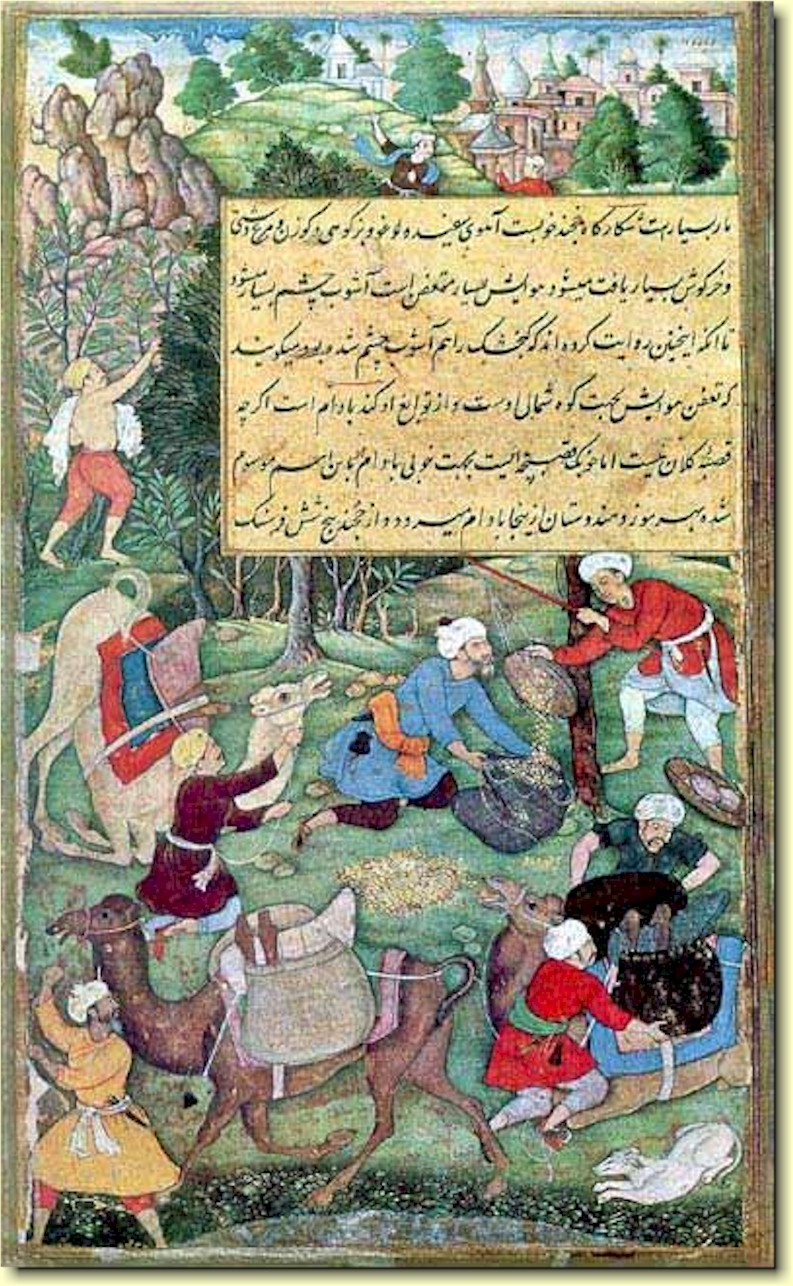 مار بسیار است شکارگاه خجند خوبست آهوی سفید و بز کوهی و گوزن و مرغ دشتی
و خرگوش بسیار یافت میشود هوایش بسیار متعفن است آشوب چشم بسیار میشود
تا آنکه اینچنین روایت کرده اند که کنجشک را هم آشوب چشم شده بود میگویند
که تعفن هوایش بجهت کوه شمال اوست و از توابع او کند بادام است اگرچه
قصبهٔ کلان نیست اما خوبک قصبچه ایست بجهت خوبی بادام باین اسم موسوم
شده بهرموز و هندوستان ازینجا بادام میرود و از خجند پنج شش فرسنک